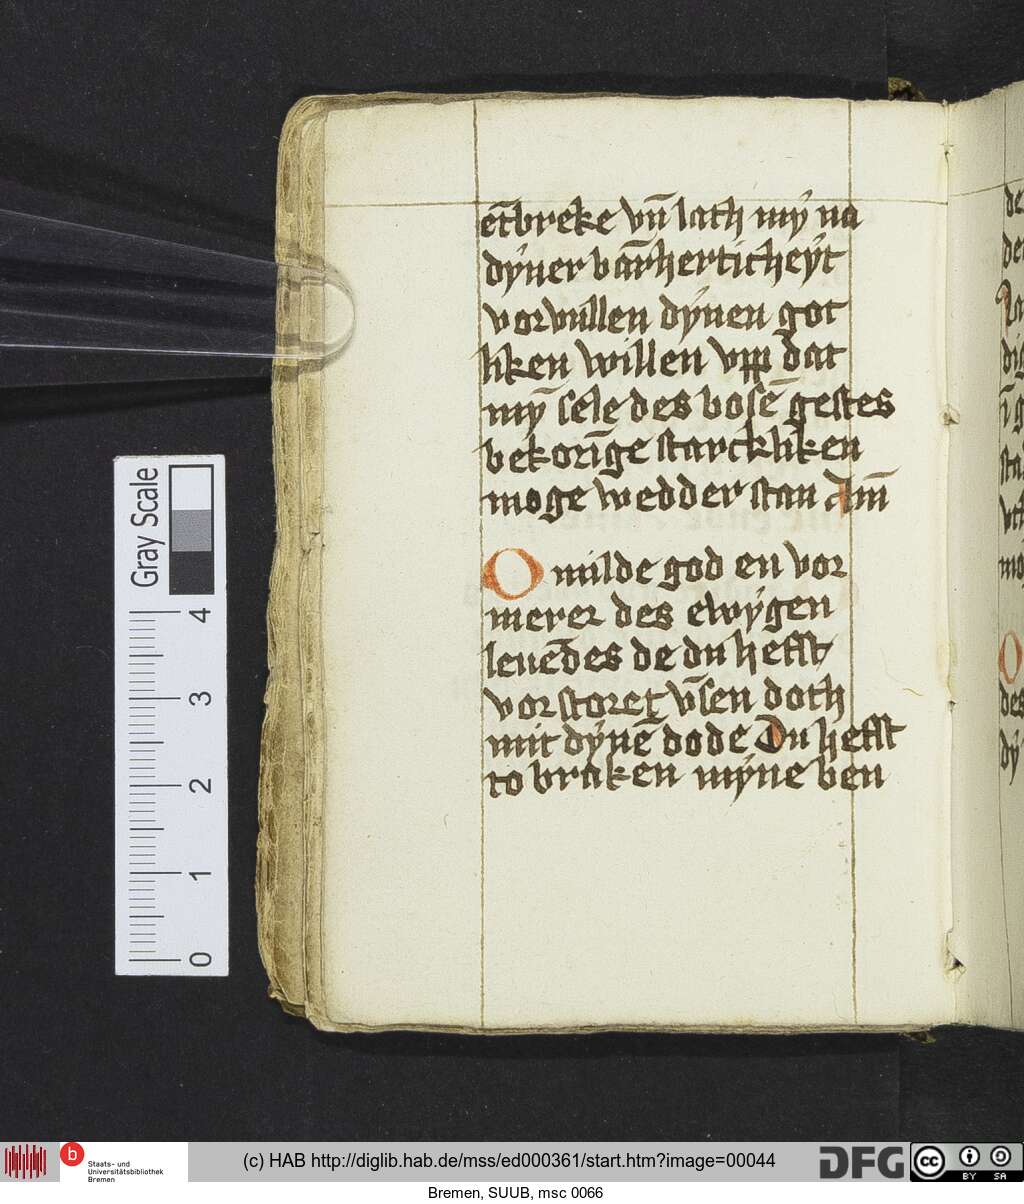 et̄breke vn̄ lath mẏ na
dẏner bar̄herticheẏt
vorvullen dẏnen got
liken willen vpp dat
mẏ̄ sele des bosē gestes
bekorīge starckliken
moge wedder stan Am̄
O milde god en vor
merer des ewẏgen
leuēdes de du hefft
vorstoret vn̄sen doth
mit dẏnē dode Du hefft
to braken mẏne ben
de
de
dig
sta
mo
O
des
dẏ
Gray Scale
4
3
2
1
0
b
Staats- und
Universitätsbibliothek
Bremen
(c) HAB http://diglib.hab.de/mss/ed000361/start.htm?image=00044
DFG
cc
BY SA
Bremen, SUUB, msc 0066